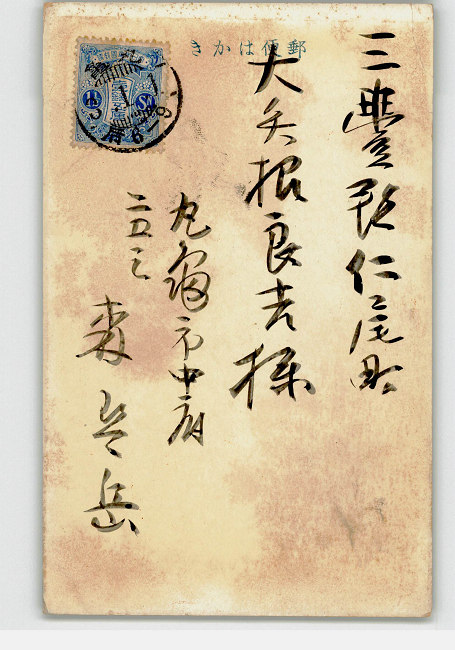 郵便はかき
三豊郡仁尾町
大矢根良吉様
丸亀市中府
二五三
森 岳
1½ Sn